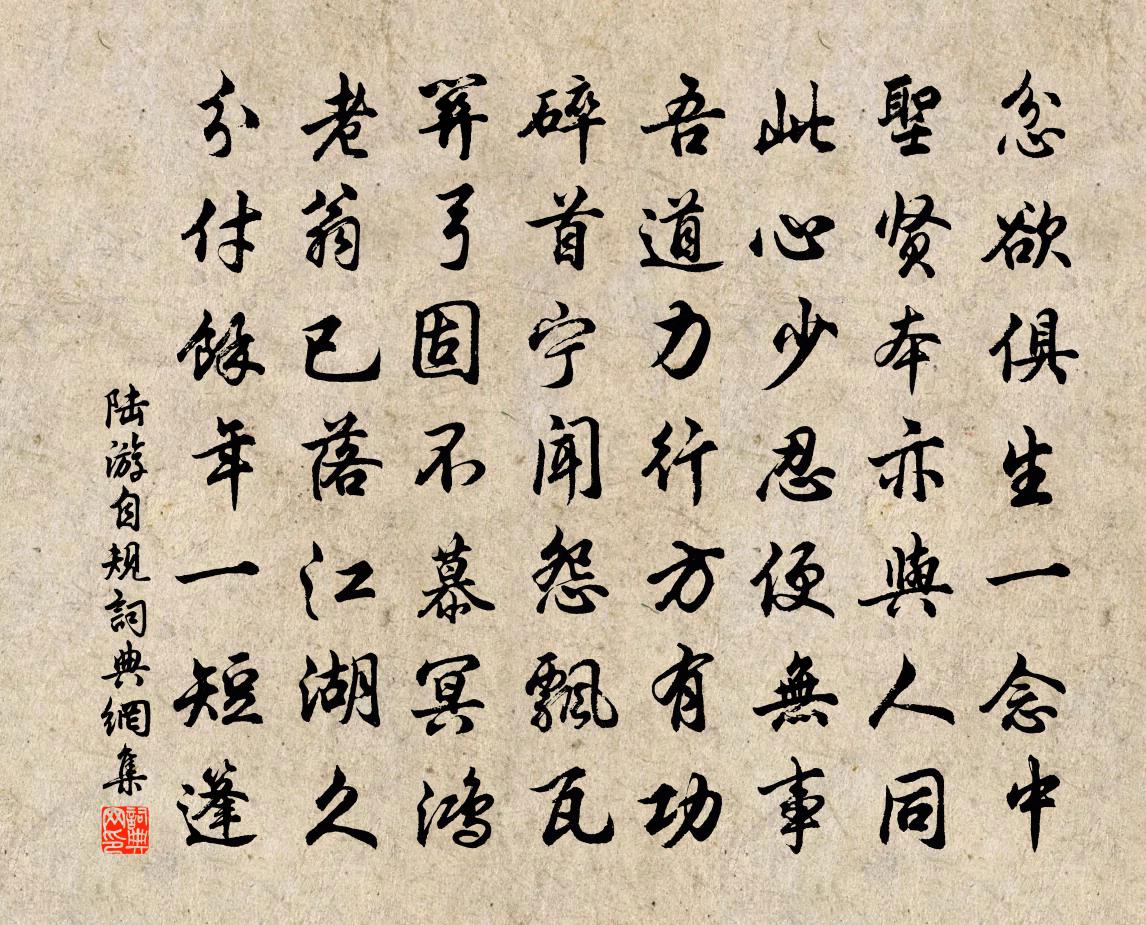 忿欲俱生一念中
聖贤本亦與人同
此心少忍便無事
吾道力行方有功
碎首宁闻怨飄瓦
羿弓固不慕冥鸿
老翁已落江湖久
分付餘年一短蓬
陆游自規詞典網集
詞典网印